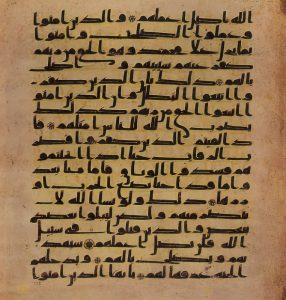 الله اضل اعملهم والذين امنوا
وعملوا الصلحت وامنوا
بما نزل على محمد وهو الحق من ربهم
كفر عنهم سياتهم واصلح
بالهم ذلك بان الذين كفر
وا اتبعوا البطل وان الذين امنوا
اتبعوا الحق من ربهم كذلك
يضرب الله للناس امثلهم فا
ذا لقيتم الذين كفروا فضر
ب الرقاب حتى اذا اثخنتمو
هم فشدوا الوثاق فاما منا
بعد واما فدا حتى تضع الحرب او
زارها ذلك ولو يشا الله لا
نتصر منهم ولكن ليبلوا بعضكم
ببعض والذين قتلوا في سبيل
الله فلن يضل اعملهم سيهد
يهم ويصلح بالهم ويدخلهم
الجنة عرفها لهم يايها الذين امنوا